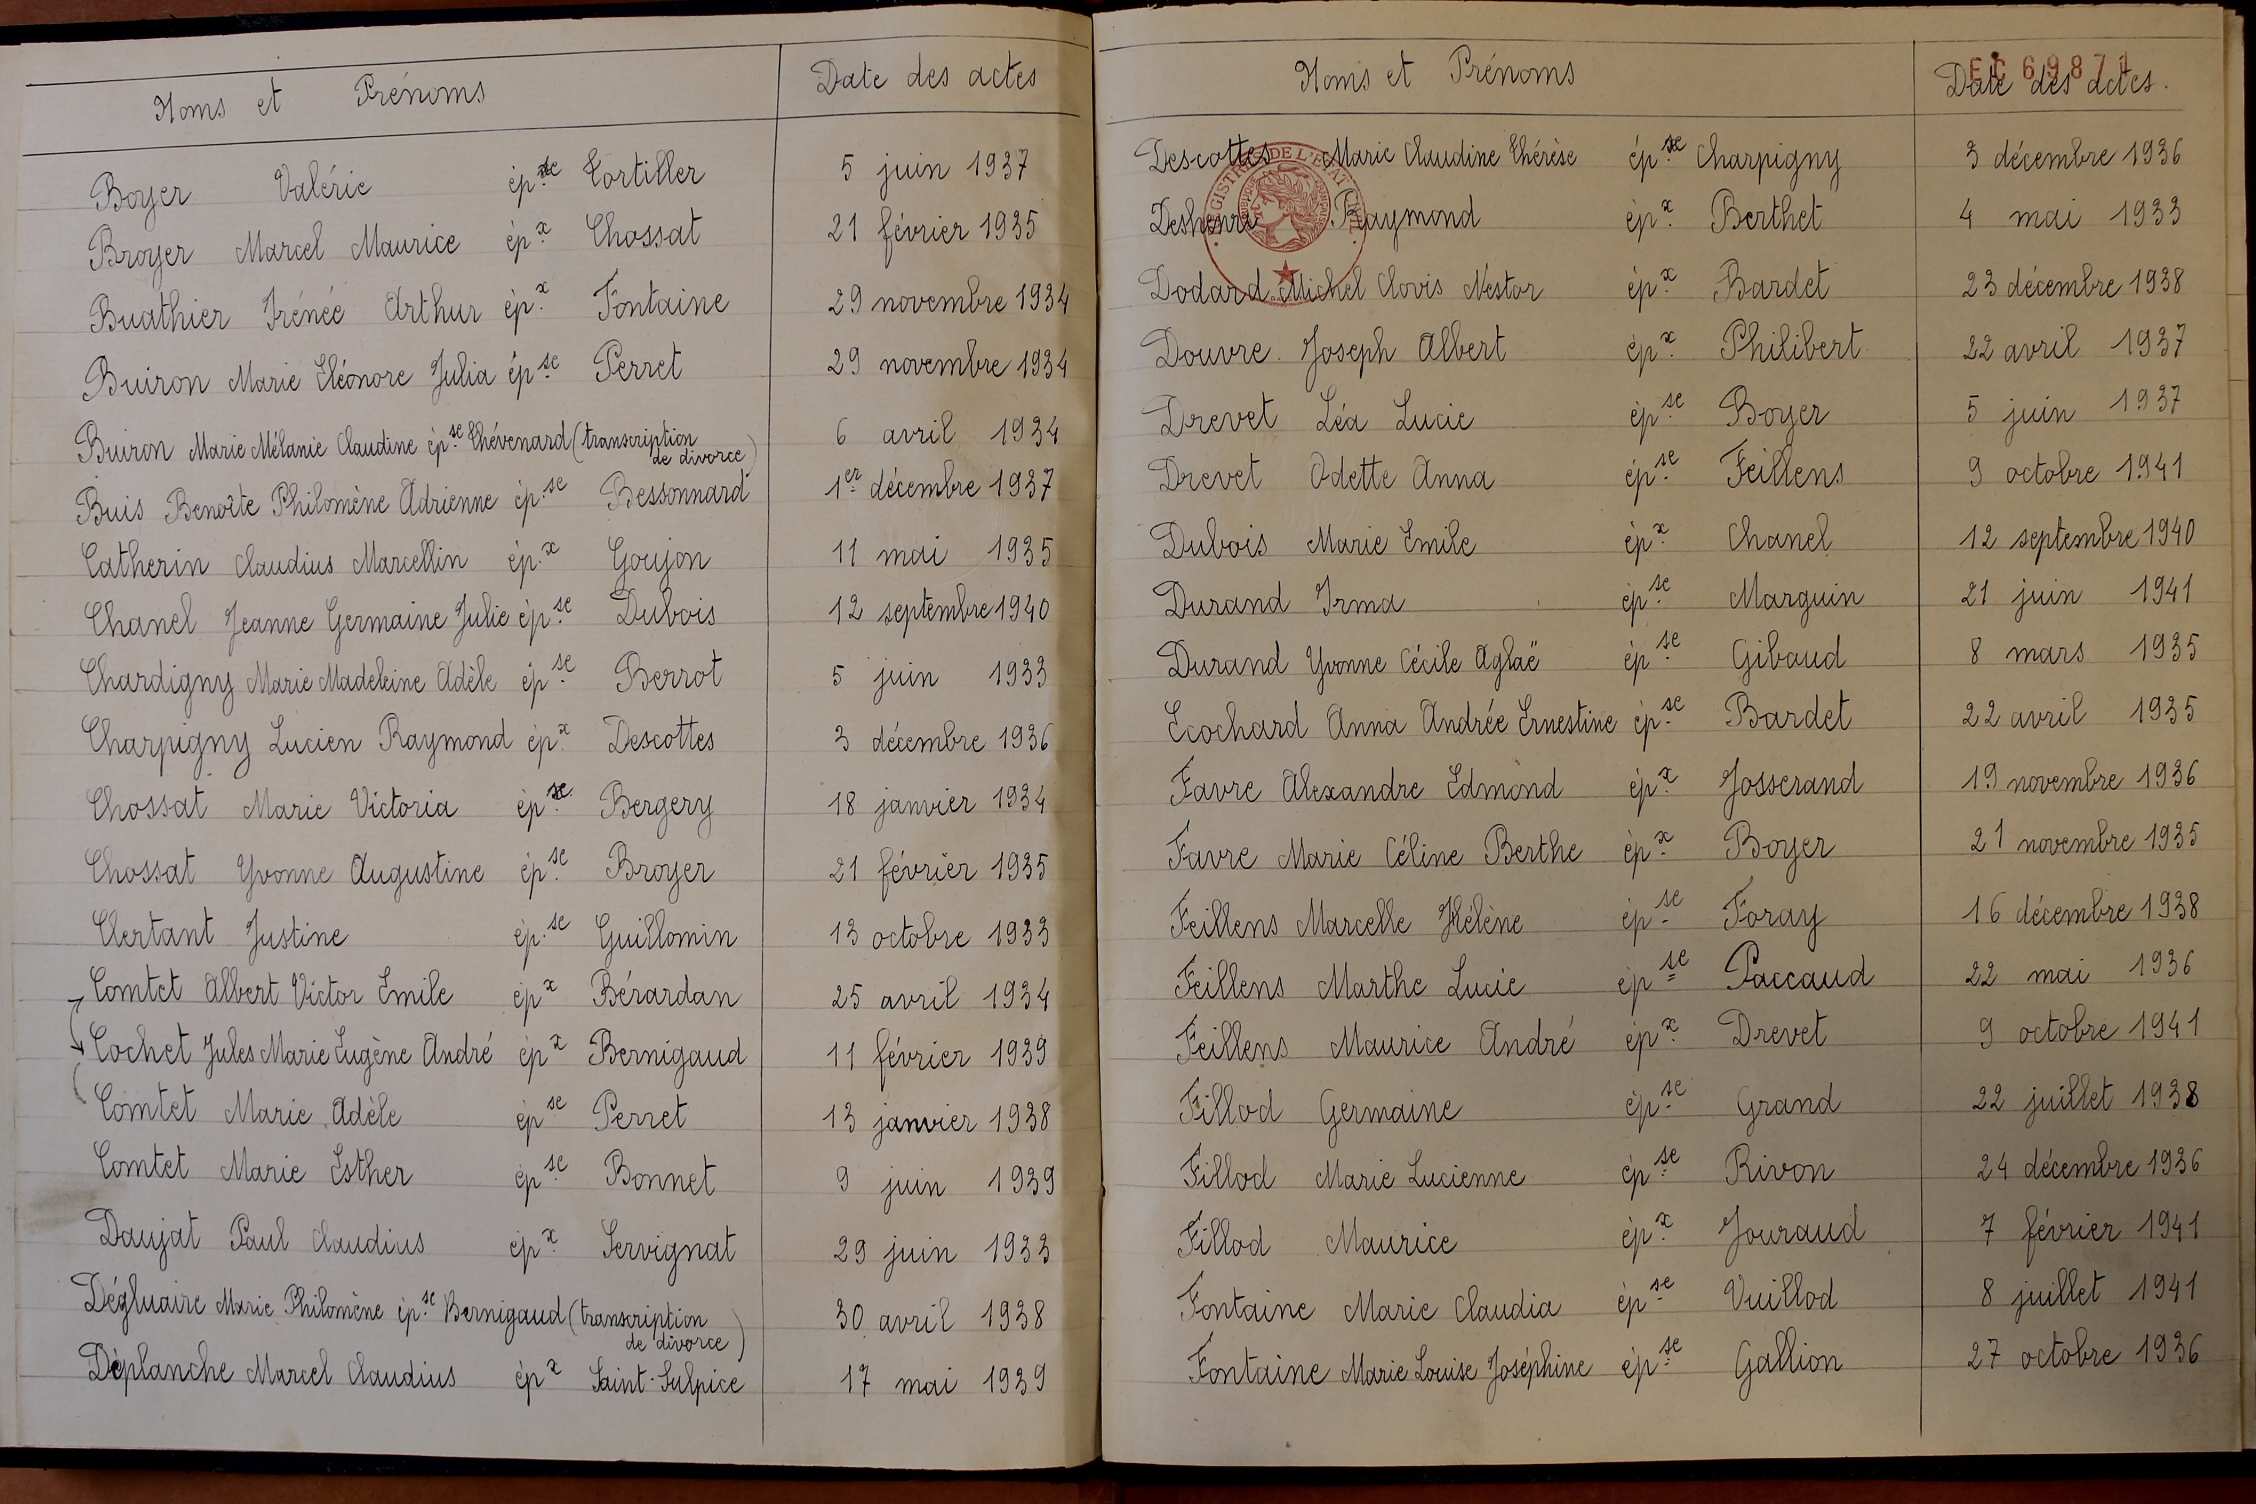 Noms et Prénoms Date des actes
Boyer Valérie épse Tortiller 5 juin 1937
Broyer Marcel Maurice épx Chossat 21 février 1935
Buathier Irénée Arthur épx Fontaine 29 novembre 1934
Buiron Marie Eléonore Julia épse Perret 29 novembre 1934
Buiron Marie Mélanie Claudine épse Thévenard (transcription 6 avril 1934
de divorce)
Buis Benoîte Philomène Adrienne épse Bessonnard 1er décembre 1937
Catherin Claudius Marcellin épx Goujon 11 mai 1935
Chanel Jeanne Germaine Julie épse Dubois 12 septembre 1940
Chardigny Marie Madeleine Adèle épse Berrot 5 juin 1933
Charpigny Lucien Raymond épx Descottes 3 décembre 1936
Chossat Marie Victoria épse Bergery 18 janvier 1934
Chossat Yvonne Augustine épse Broyer 21 février 1935
Clertant Justine épse Guillomin 13 octobre 1933
Comtet Albert Victor Emile épx Bérardan 25 avril 1934
Cochet Jules Marie Eugène André épx Bernigaud 11 février 1939
Comtet Marie Adèle épse Perret 13 janvier 1938
Comtet Marie Esther épse Bonnet 9 juin 1939
Daujat Paul Claudius épx Servignat 29 juin 1933
Dégluaire Marie Philomène épse Bernigaud (transcription 30 avril 1938
de divorce)
Déplanche Marcel Claudius épx Saint-Sulpice 17 mai 1939
EC 69871
Noms et Prénoms Date des actes.
Descottes Marie Claudine Thérèse épse Charpigny 3 décembre 1936
REGISTRE DE L'ETAT CIVIL
Deshenri Raymond épx Berthet 4 mai 1933
Dodard Michel Clovis Nestor épx Bardet 23 décembre 1938
Douvre Joseph Albert épx Philibert 22 avril 1937
Drevet Léa Lucie épse Boyer 5 juin 1937
Drevet Odette Anna épse Feillens 9 octobre 1941
Dubois Marie Emile épx Chanel 12 septembre 1940
Durand Irma épse Marguin 21 juin 1941
Durand Yvonne Cécile Aglaë épse Gibaud 8 mars 1935
Ecochard Anna Andrée Ernestine épse Bardet 22 avril 1935
Favre Alexandre Edmond épx Josserand 19 novembre 1936
Favre Marie Céline Berthe épx Boyer 21 novembre 1935
Feillens Marcelle Hélène épse Foray 16 décembre 1938
Feillens Marthe Lucie épse Paccaud 22 mai 1936
Feillens Maurice André épx Drevet 9 octobre 1941
Fillod Germaine épse Grand 22 juillet 1938
Fillod Marie Lucienne épse Rivon 24 décembre 1936
Fillod Maurice épx Jouraud 7 février 1941
Fontaine Marie Claudia épse Vuillod 8 juillet 1941
Fontaine Marie Louise Joséphine épse Gallion 27 octobre 1936